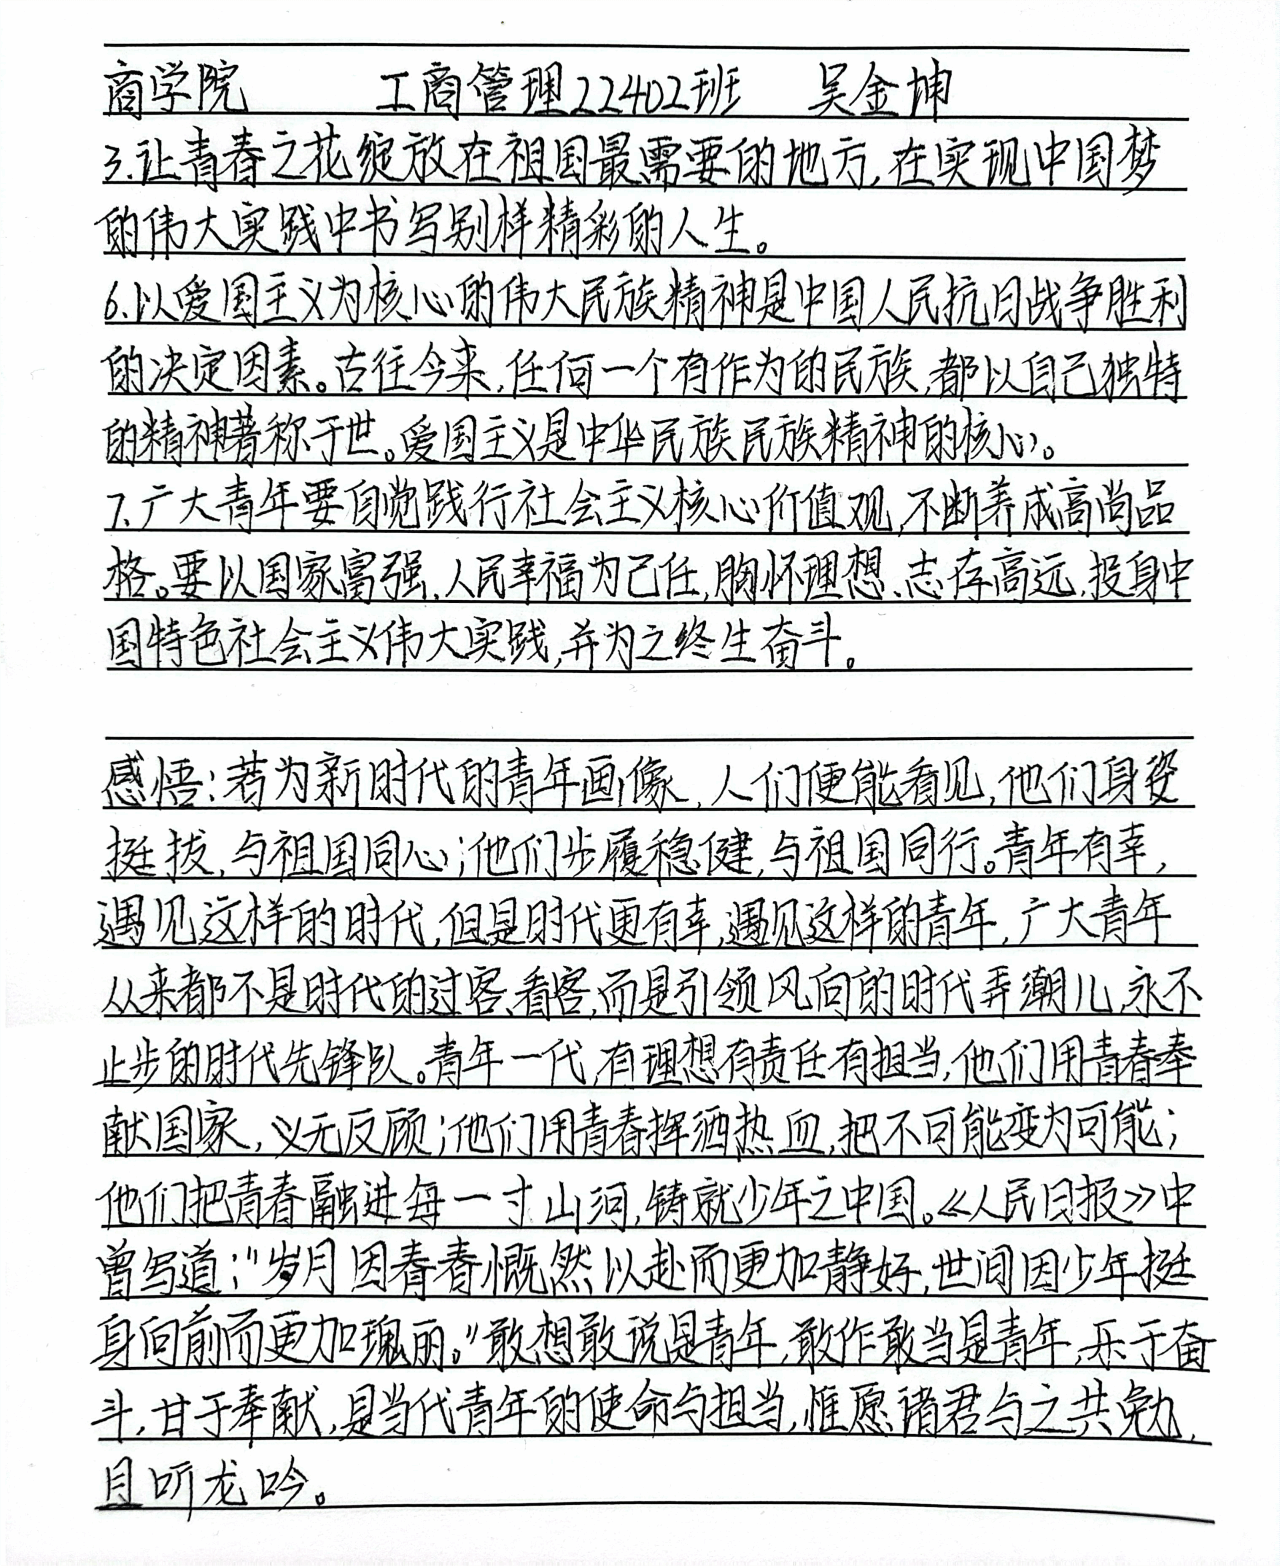 商学院 工商管理22402班 吴金坤
3.让青春之花绽放在祖国最需要的地方,在实现中国梦
的伟大实践中书写别样精彩的人生。
6.以爱国主义为核心的伟大民族精神是中国人民抗日战争胜利
的决定因素。古往今来,任何一个有作为的民族,都以自己独特
的精神著称于世。爱国主义是中华民族民族精神的核心。
7.广大青年要自觉践行社会主义核心价值观,不断养成高尚品
格。要以国家富强、人民幸福为己任,胸怀理想、志存高远,投身中
国特色社会主义伟大实践,并为之终生奋斗。
感悟:若为新时代的青年画像,人们便能看见,他们身姿
挺拔,与祖国同心;他们步履稳健,与祖国同行。青年有幸,
遇见这样的时代,但是时代更有幸,遇见这样的青年,广大青年
从来都不是时代的过客、看客,而是引领风向的时代弄潮儿,永不
止步的时代先锋队。青年一代,有理想有责任有担当,他们用青春奉
献国家,义无反顾;他们用青春挥洒热血,把不可能变为可能;
他们把青春融进每一寸山河,铸就少年之中国。《人民日报》中
曾写道:"岁月因青春慨然以赴而更加静好,世间因少年挺
身向前而更加瑰丽。"敢想敢说是青年,敢作敢当是青年,乐于奋
斗,甘于奉献,是当代青年的使命与担当,惟愿诸君与之共勉,
且听龙吟。